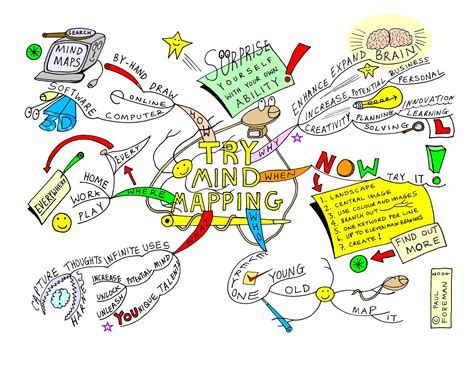 SEARCH
MIND
MAPS
BY-HAND DRAW
ONLINE
COMPUTER
SOFTWARE
3D
HOW
SURPRISE
YOURSELF
WITH YOUR OWN
ABILITY
!
ENHANCE EXPAND BRAIN
INCREASE POTENTIAL BUSINESS
PERSONAL
CREATIVITY PLANNING
SOLVING
INNOVATION
LEARNING
L
WHY
TRY
MIND
MAPPING
EVERY
HOME
WORK
PLAY
EVERYWHERE
WHERE
WHEN
NOW
TRY IT
!
1. LANDSCAPE
2. CENTRAL IMAGE
3. USE COLOUR AND IMAGES
4. BRANCH OUT
5. ONE KEYWORD PER LINE
6. UP TO ELEVEN MAIN BRANCHES
7. CREATE!
FIND OUT
MORE
CAPTURE THOUGHTS INFINITE USES
INCREASE POTENTIAL MIND
UNLOCK
UNLEASH
YOUNIQUE TALENT
WHAT
WHO
EVERYONE
YOUNG
OLD
MAP
IT
© PAUL
FOREMAN